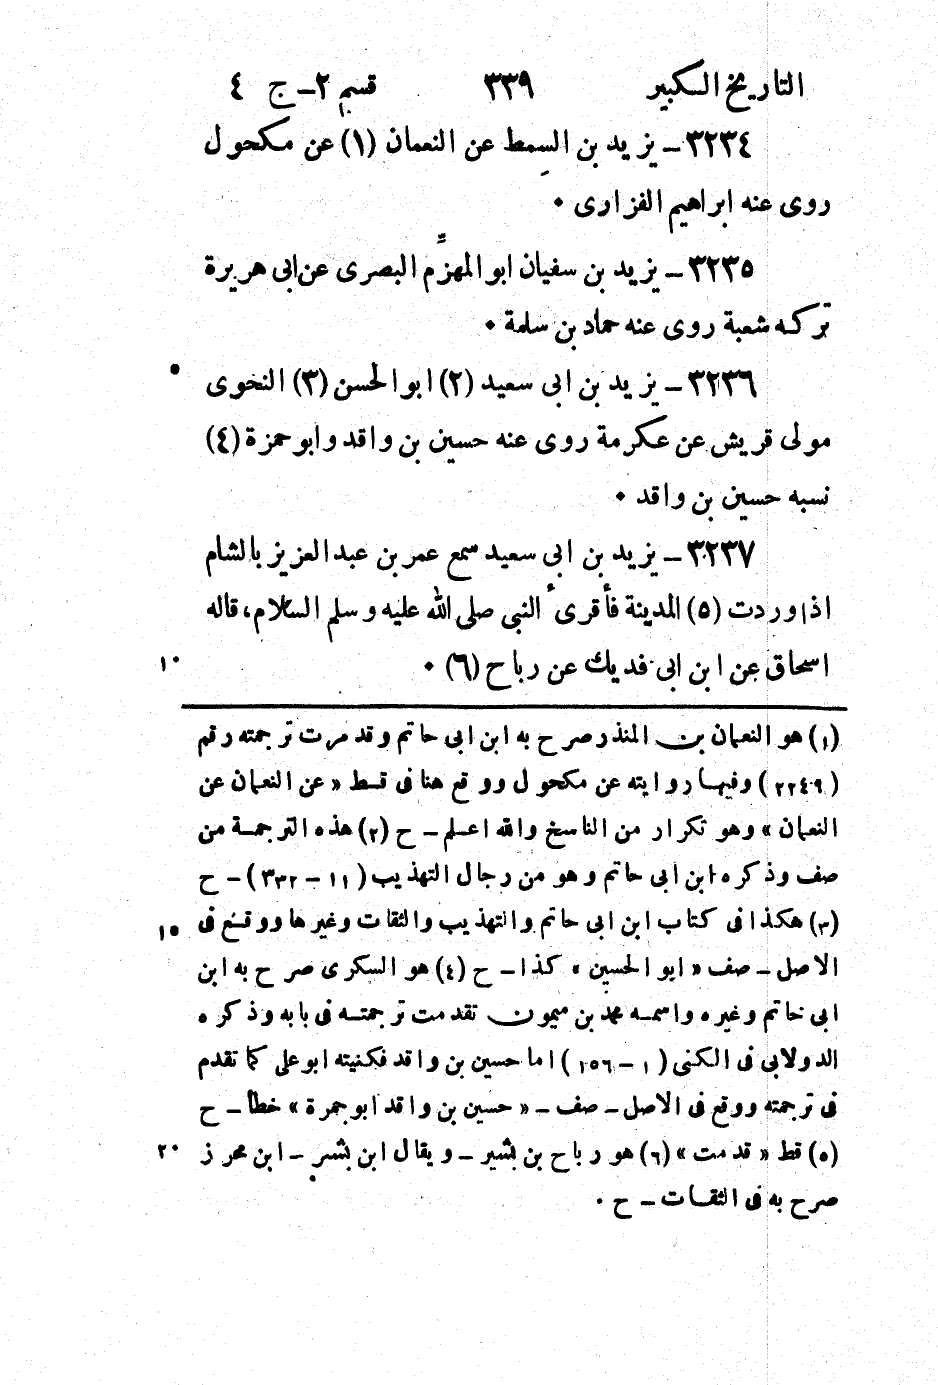 التاريخ الكبير ٣٣٩ قسم ٢ – ج ٤
٣٢٣٤ – يزيد بن السمط عن النعمان (١) عن مكحول
روى عنه ابراهيم الفزارى ٠
٣٢٣٥ – يزيد بن سفيان ابو المهزّم البصرى عن ابى هريرة
تركه شعبة روى عنه حماد بن سلمة ٠
٣٢٣٦ – يزيد بن ابى سعيد (٢) ابو الحسن (٣) النحوى
مولى قريش عن عكرمة روى عنه حسين بن واقد وابو حمزة (٤)
نسبه حسين بن واقد ٠
٣٢٣٧ – يزيد بن ابى سعيد سمع عمر بن عبد العزيز بالشام
اذا وردت (٥) المدينة فأقرىء النبى صلى الله عليه وسلم السلام، قاله
اسحاق عن ابن ابى فديك عن رباح (٦) ٠ ١٠
(١) هو النعمان بن المنذر صرح به ابن ابى حاتم وقد مرت ترجمته رقم
(٢٢٤٩) وفيها روايته عن مكحول ووقع هنا فى قط « عن النعمان عن
النعمان » وهو تكرار من الناسخ والله اعلم – ح (٢) هذه الترجمة من
صف وذكره ابن ابى حاتم وهو من رجال التهذيب (١١ – ٣٣٢) – ح
(٣) هكذا فى كتاب ابن ابى حاتم والتهذيب والثقات وغيرها ووقع فى ١٥
الاصل – صف « ابو الحسين » كذا – ح (٤) هو السكرى صرح به ابن
ابى حاتم وغيره واسمه محمد بن ميمون تقدمت ترجمته فى بابه وذكره
الدولابى فى الكنى (١ – ١٥٦) اما حسين بن واقد فكنيته ابو على كما تقدم
فى ترجمته ووقع فى الاصل – صف – « حسين بن واقد ابو جمرة » خطأ – ح
(٥) قط « قدمت » (٦) هو رباح بن بشير – ويقال ابن بشر – ابن محرز ٢٠
صرح به فى الثقات – ح ٠